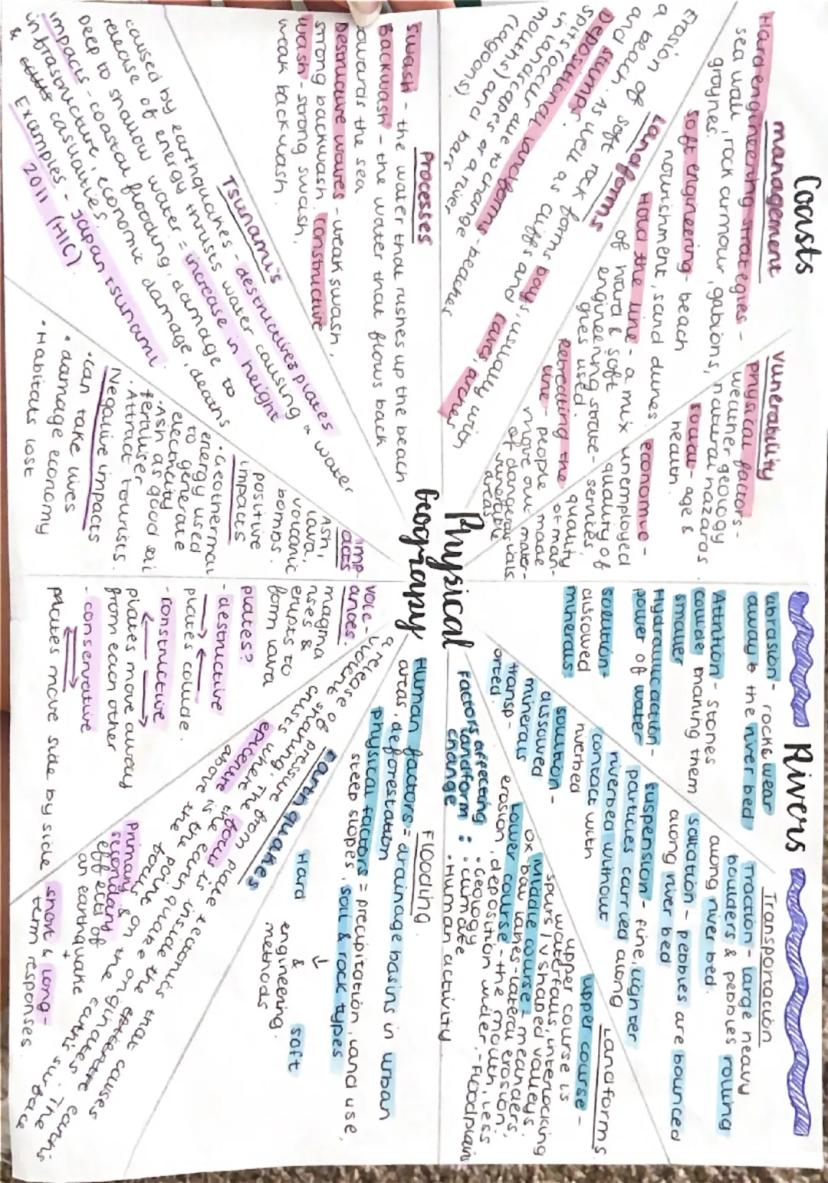 Coasts
management
Hard engineering strategies -
sea wall, rock armour, gabions,
groynes.
Soft engineering - beach
nourishment, sand dunes.
Hold the line - a mix
of hard & soft
engineering strate-
gies used.
Retreating the
line - people
move out
of dangerous
vulnerable
areas
vunerability
physical factors -
weather, geology
natural hazards
social - age &
health.
economic -
unemployed
quality of
services,
quality
of man-
made
mater-
ials
Landforms
Erosion of soft rock forms bays usually with
a beach. as well as cliffs and caves, arches
and stumps.
Depositional landforms - beaches
spits (occur due to change
in landscapes or a river
mouths) and bars
(lagoons).
Processes
Swash - the water that rushes up the beach
Backwash - the water that flows back
towards the sea.
Destructive waves - weak swash,
strong backwash. Constructive
wash - strong swash,
weak backwash.
Tsunami's
caused by earthquakes - destructive plates
release of energy thrusts water causing a water
deep to shallow water = increase in height
impacts - coastal flooding, damage to
infrastructure, economic damage, deaths
& casualties.
Examples - Japan tsunami
2011 (HIC)
Physical
Geograpy
imp
acts
Ash,
lava,
volcanic
bombs.
positive
impacts
• Geothermal
energy used
to generate
electricity
• Ash as good soil
fertiliser
• Attract tourists.
Negative impacts
• can take lives
• damage economy
• Habitats lost
volc-
anoes.
magma
rises &
erupts to
form lava
plates?
- destructive
plates collide.
- constructive
plates move away
from each other
- conservative
plates move side by side
Earthquakes
a release of pressure from plate tectonics that causes
violent
crusts
where the
The focus is inside the earth's
the earthquake originates. The
epicentre is the point on the earth's surface
above the focus
Primary &
secondary
effects of
an earthquake
+
short & long-
term responses.
Flooding
Human factors = drainage basins in urban
areas, deforestation
physical factors = precipitation, land use,
steep slopes, soil & rock types
Hard & soft
↓
engineering
methods
Rivers
abrasion - rocks wear
away @ the river bed
Attrition - stones
collide making them
smaller
Hydraulic action -
power of water
solution -
dissolved
minerals
Transportation
Traction - large heavy
boulders & pebbles rolling
along river bed.
saltation - pebbles are bounced
along river bed
suspension - fine, lighter
particles carried along
riverbed without
contact with
riverbed
solution -
dissolved
minerals
transp-
orted.
Landforms
upper course -
upper course is
waterfalls, interlocking
spurs, v shaped valleys.
Middle course - meanders,
ox bow lakes - lateral erosion,
Lower course - the mouth, less
erosion, deposition wider. - Floodplain
Factors affecting
landform
change :
• Geology
• climate
• Human activity